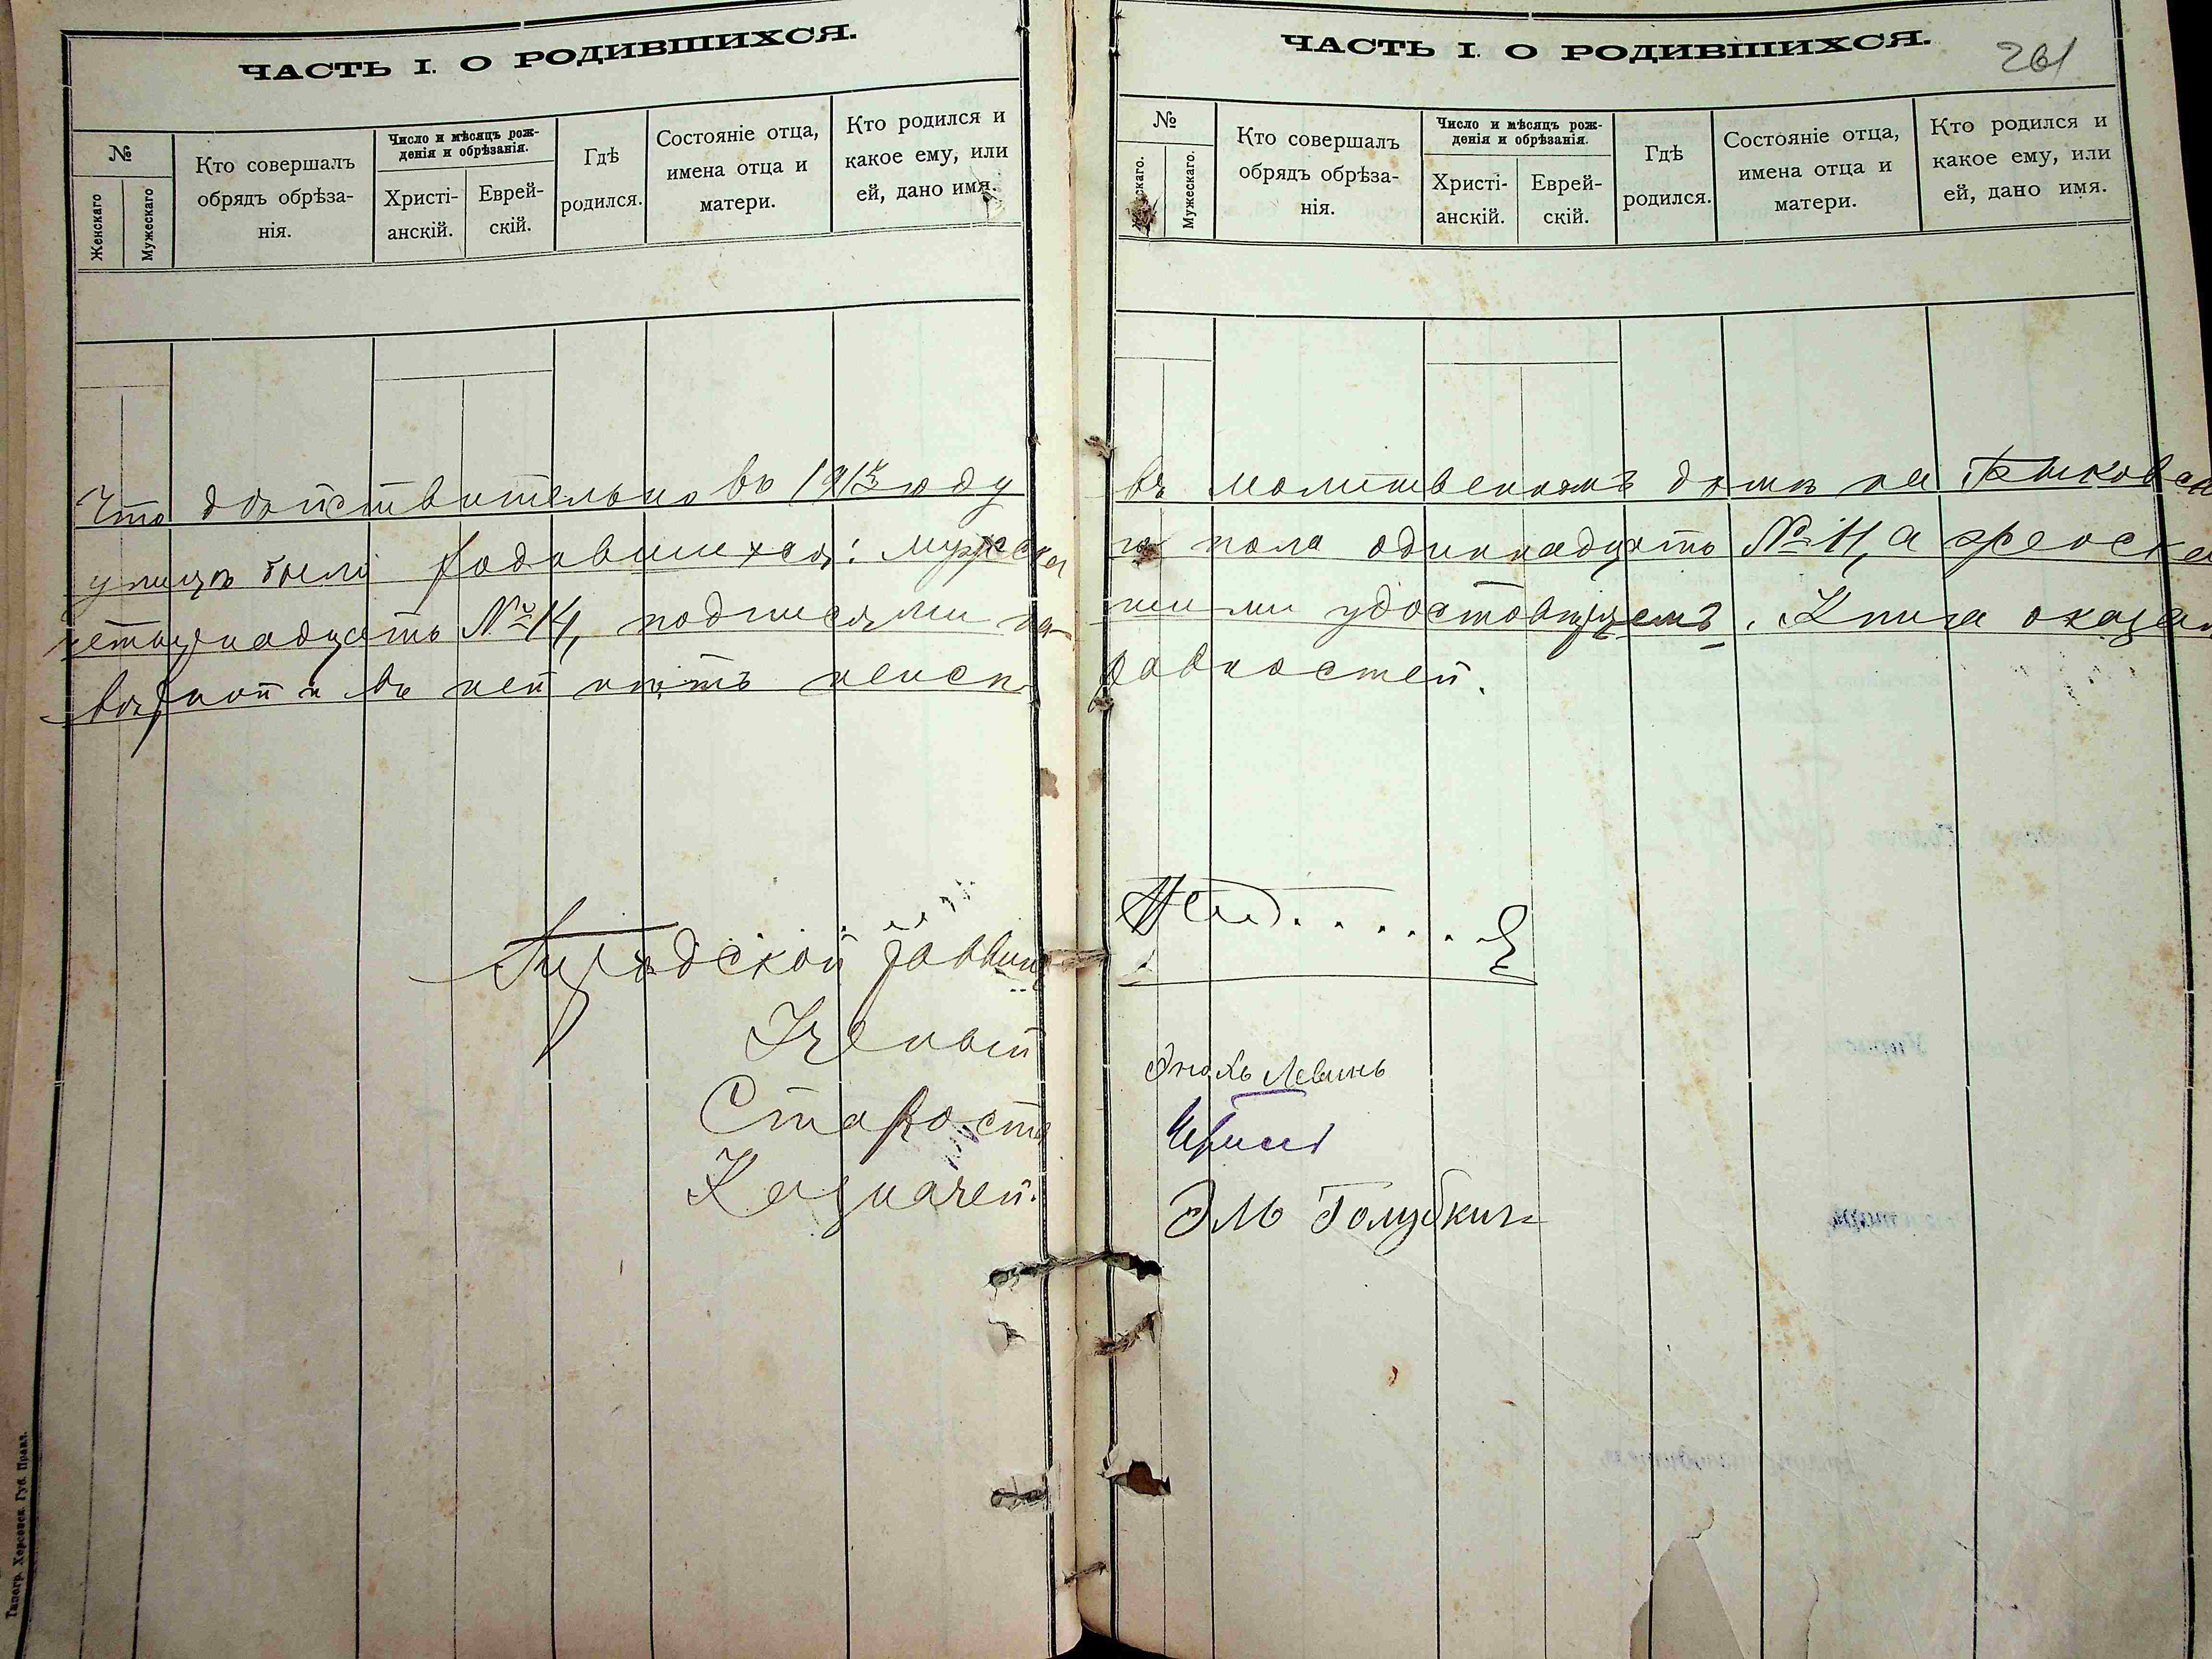 ЧАСТЬ I. О РОДИВШИХСЯ.
№
Женскаго
Мужескаго
Кто совершалъ
обрядъ обрѣза-
нія.
Число и мѣсяцъ рож-
денія и обрѣзанія.
Христі-
анскій.
Еврей-
скій.
Гдѣ
родился.
Состояніе отца,
имена отца и
матери.
Кто родился и
какое ему, или
ей, дано имя.
ЧАСТЬ I. О РОДИВШИХСЯ.
261
№
Мужескаго.
Кто совершалъ
обрядъ обрѣза-
нія.
Число и мѣсяцъ рож-
денія и обрѣзанія.
Христі-
анскій.
Еврей-
скій.
Гдѣ
родился.
Состояніе отца,
имена отца и
матери.
Кто родился и
какое ему, или
ей, дано имя.
Что дѣйствительно въ году въ молитвенномъ домѣ на
улицѣ было родившихся: мужска го пола одиннадцать № 11, а женска
четырнадцать № 14, подписями на- шими удостовѣряемъ. Книга оказал
вѣрной и въ ней нѣтъ неисп равностей.
Городской раввинъ
Ученый Левинъ
Староста
Казначей. Эль Голубкинъ
Типогр. Херсонск. Губ. Правл.